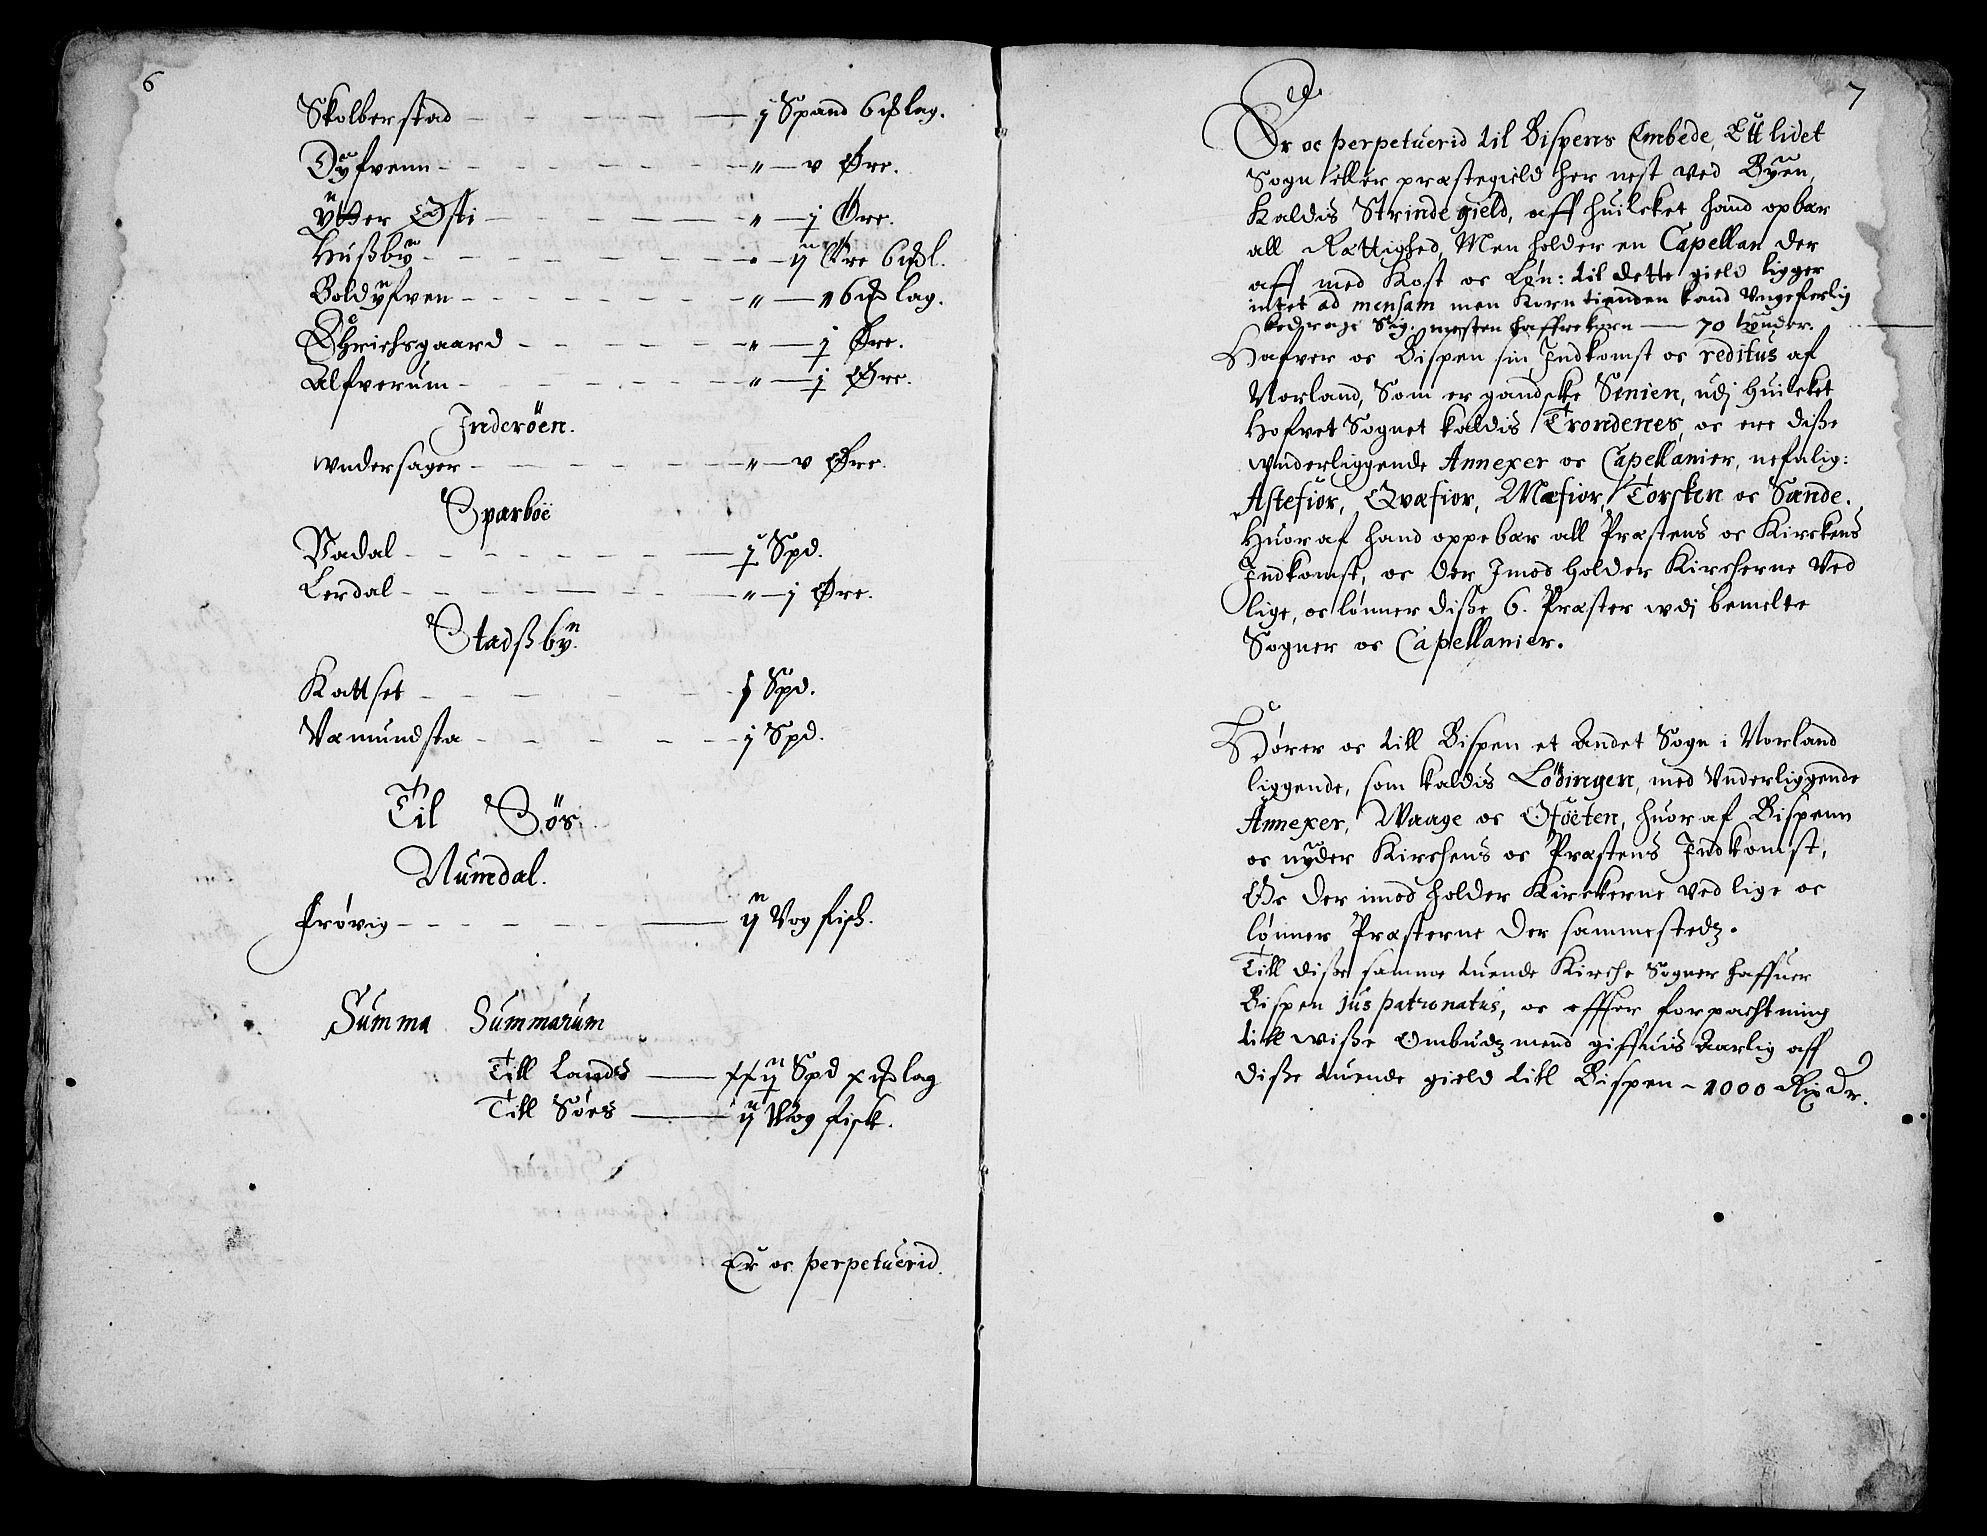 6
Skolberstad — j Spand 6 lag.
Dyfvenn — " — v Øre.
Ytter Østi — " — j Øre.
Hußby — ij Øre 6
Boldyfven — " — 6 lag.
Øhrichsgaard — " — j Øre.
Alfverum — " — j Øre.
Inderöen.
wndersager — " — v Øre.
Sparboe
Vadal — j Spd.
Lerdal — " — j Øre.
Stadßby.
Kattset — j Spd.
Væmundsta — j Spd.
Til Sös
Numdal.
Frøvig — ij Vog fisk.
Summa Summarum
Till Lands — xxij Spd x lag
Till Søes — ij Vog fisk.
Er oc perpetuerid
7
Er oc perpetuerid til Bispens Embede, Ett lidet
Sogn eller præstegield her nest ved Byen,
Kaldis Strinde gield, aff huilcket hand opbær
all Rættighed, Men holder en Capellan der
aff med Kost oc Løn: til dette gield ligger
intet ad mensam men Korn tienden kand Vngeferlig
bedrage Sig. mesten haffrekorn — 70 tønder.
Hafver oc Bispen sin Indkomst oc reditus af
Norland, Som er gandske Senien, udj huilcket
Hofvet Sognet kaldis Trondenes, oc ere diße
wnderliggende Annexer oc Capellanier, nefnlig:
Astefior, Qvæfior, Mæfior, Torsken oc Sande.
Huoraf hand oppebær all Præstens oc Kirckens
Indkomst, oc der Imod holder Kirckerne Ved
lige, oc lønner diße 6. Præster wdj bemelte
Sogner oc Capellanier.
Hører oc till Bispen et Andet Sogn i Norland
liggende, som kaldis Lödingen, med Vnderliggende
Annexer, Waage oc Ofoeten, huoraf Bispenn
oc nyder Kirckens oc Præstens Indkomst,
Oc der imod holder Kirckerne ved lige oc
lønner Præsterne der sammestedz.
Till diße samme tuende Kircke Sogner haffuer
Bispen jus patronatus, oc effter forpachtning
till wiße Ombudz mend giffuis Aarlig aff
diße tuende gield till Bispen – 1000 Rix Dr.